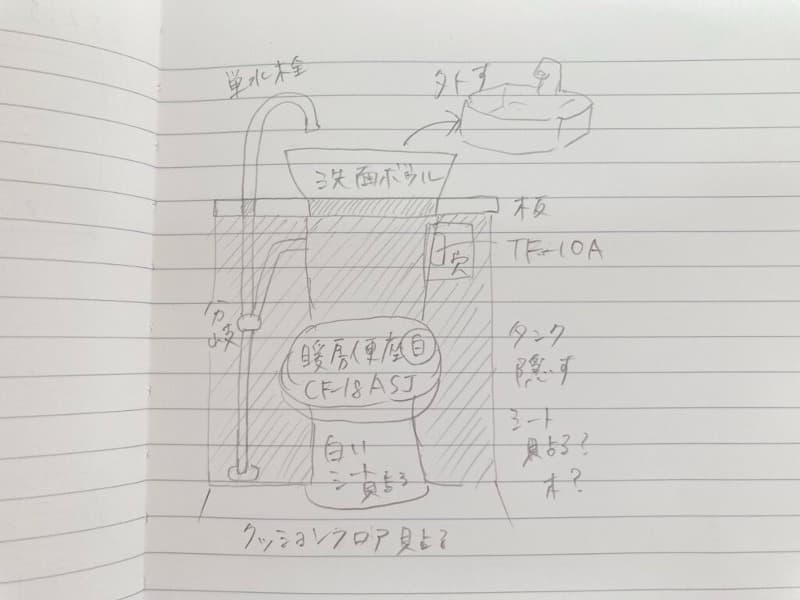 単水栓
外す
洗面ボウル
板
TF-10A
分岐
暖房便座
CF-18ASJ
タンク
隠す
シート
貼る?
木?
白い
シート
貼る
クッションフロア貼る